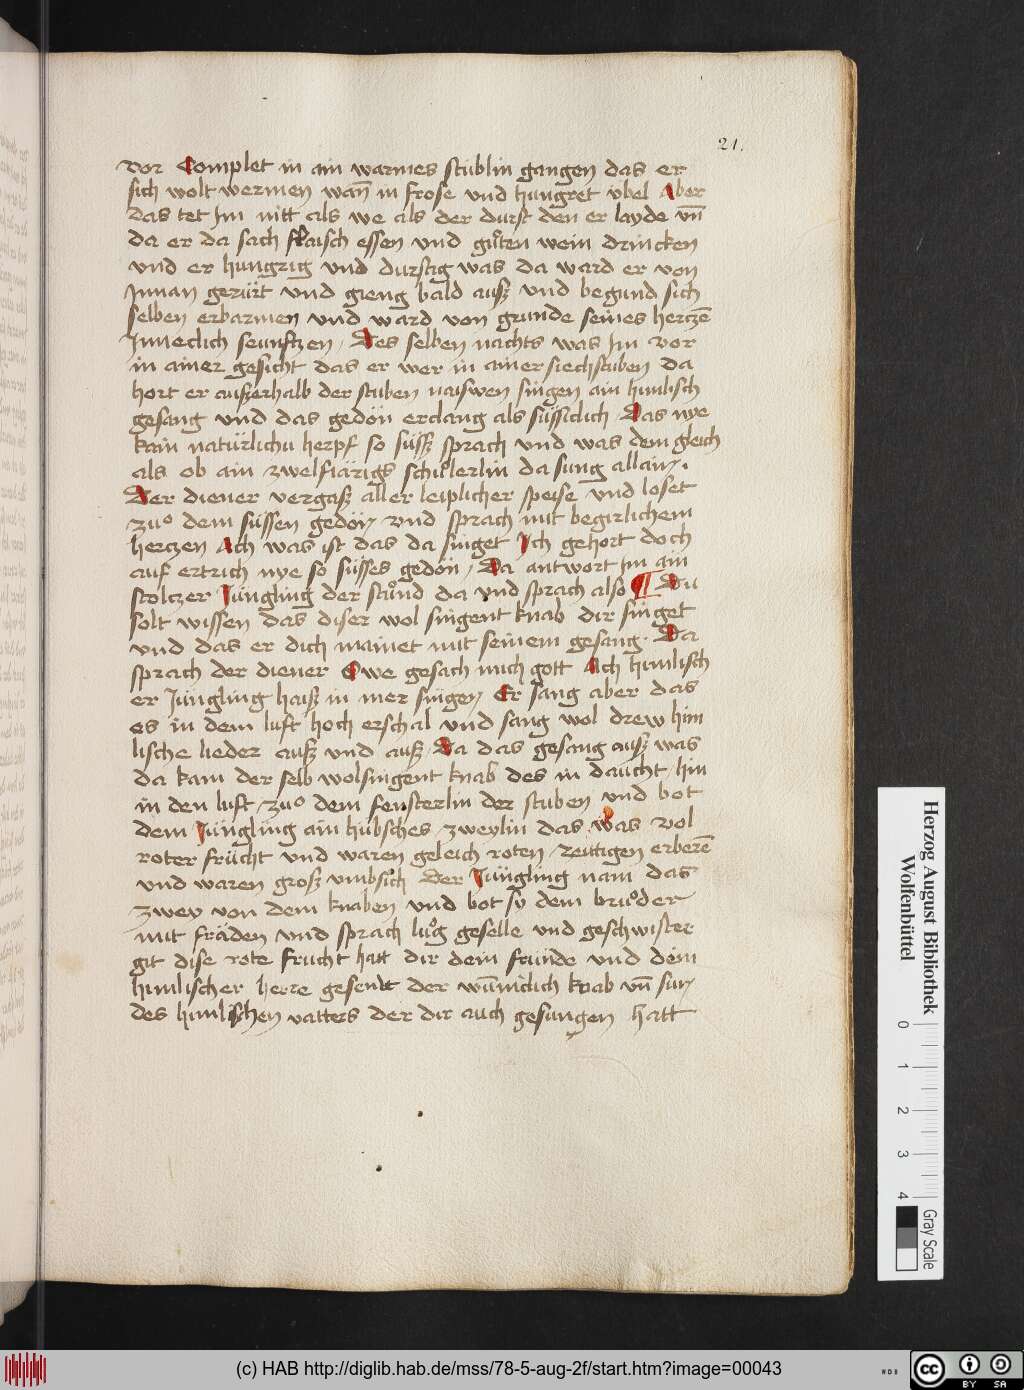 21.
vor Complet in ain warmes stüblin gangen das er
sich wolt wermen wañ in frose vnd hungret vbel Aber
das tet Im nitt als we als der durst den er layde vñ
da er da sach flaisch essen vnd gůten wein drincken
vnd er hungrig vnd durstig was da ward er von
Innan gerürt vnd gieng bald ausz vnd begund sich
selben erbarmen vnd ward von grunde seines herczē
Inneclich seünftzen / Des selben nachts was Im vor
in ainer gesicht das er wer in ainer siechstuben da
hort er auszerhalb der stuben naiswen singen ain himlisch
gesang vnd das gedön erclang als süssiclich Das nye
kain natürlichu herpf so süssz sprach vnd was dem gleich
als ob ain zwelfiärigs schůlerlin da sung allain.
Der diener vergasz aller leiplicher speise vnd loset
zuo dem süssen gedön vnd sprach mit begirlichem
herczen Ach was ist das da singet Ich gehort doch
auf ertrich nye so süsses gedön / Da antwort Im ain
stolczer Jüngling der stůnd da vnd sprach also ¶ Du
solt wissen das diser wol singent knab dir singet
vnd das er dich mainet mit seinem gesang. Da
sprach der diener Owe gesach mich gott Ach himlisch
er Jüngling haisz in mer singen Er sang aber das
es in dem luft hoch erschal vnd sang wol drew him
lische lieder ausz vnd ausz Da das gesang ausz was
da kam der selb wolsingent knab des in daucht hin
in den luft zuo dem fensterlin der stuben vnd bot
dem Jüngling ain hübsches zweylin das was vol
roter frücht vnd waren geleich roten zeittigen erberē
vnd waren grosz vmbsich Der Jüngling nam das
zwey von dem knaben vnd bot sy dem brůder
mit fräden vnd sprach lůg geselle vnd geschwister
git dise rote frucht hatt dir dein fründe vnd dein
himlischer herre gesendt der wũniclich knab vñ sun
des himlischen vatters der dir auch gesungen hatt
Herzog August Bibliothek
Wolfenbüttel
0 1 2 3 4
Gray Scale
(c) HAB http://diglib.hab.de/mss/78-5-aug-2f/start.htm?image=00043
WDB
cc BY SA